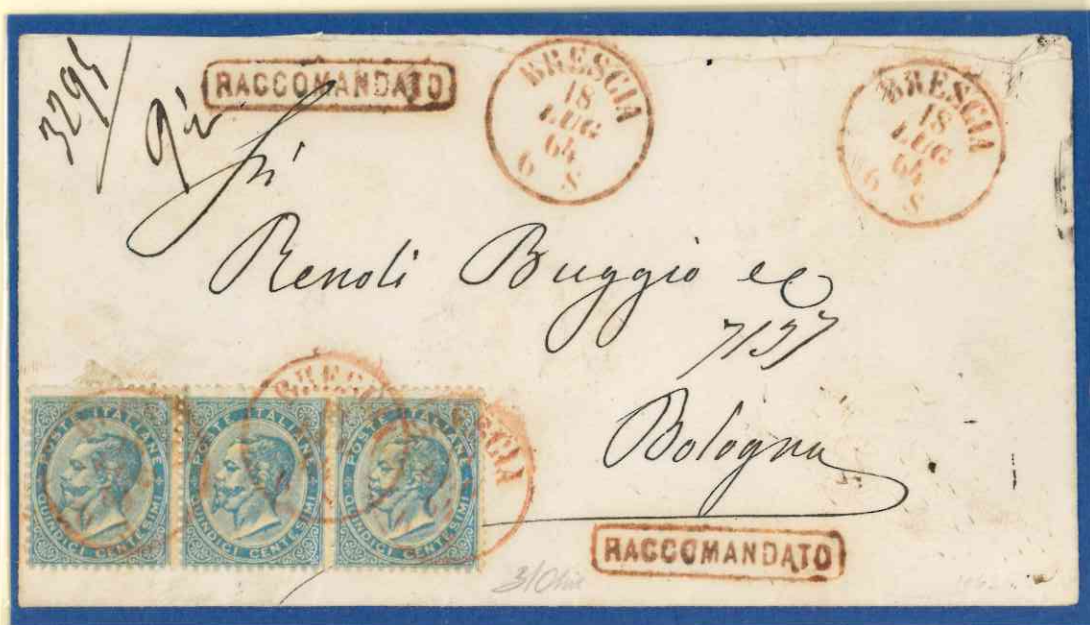 3295
RACCOMANDATO
BRESCIA
18
LUG
64
6 S
BRESCIA
18
LUG
64
6 S
Renoli Buggio
Bologna
BRESCIA
POSTE ITALIANE
QUINDICI CENTESIMI
POSTE ITALIANE
QUINDICI CENTESIMI
POSTE ITALIANE
QUINDICI CENTESIMI
RACCOMANDATO